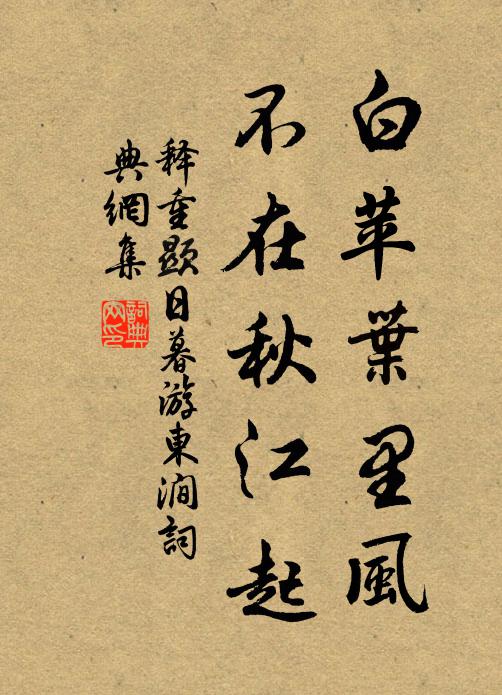 白苹葉里風
不在秋江起
释重顯日暮游東澗詞
典網集
詞典网印